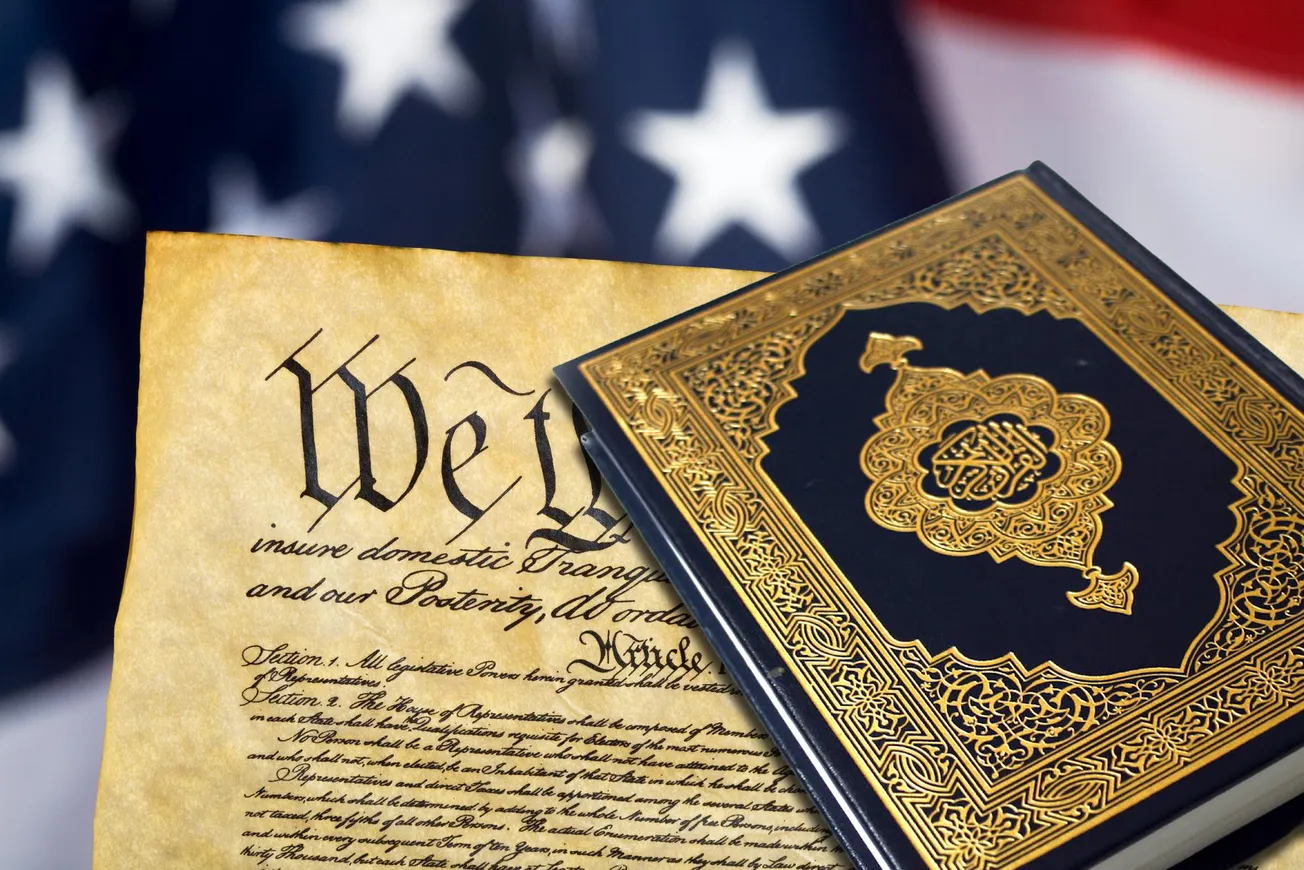 We
insure domestic Tranqu
and our Posterity, do orda
Article
Section. 1. All legislative Powers herein granted shall be vested
of Representatives
Section. 2. The House of Representatives shall be composed of Member
in each State shall have the Qualifications requisite for Electors of the most numerous
No Person shall be a Representative who shall not have attained to the Ag
and who shall not, when elected, be an Inhabitant of that State in which he shall be cho
Representatives and direct Taxes shall be apportioned among the several States wh
Numbers, which shall be determined by adding to the whole Number of free Persons, includin
not taxed, three fifths of all other Persons. The actual Enumeration shall be made within
and within every subsequent Term of ten Years, in such Manner as they shall by Law direct
thirty Thousand, but each State shall have at Least
القرآن الكريم